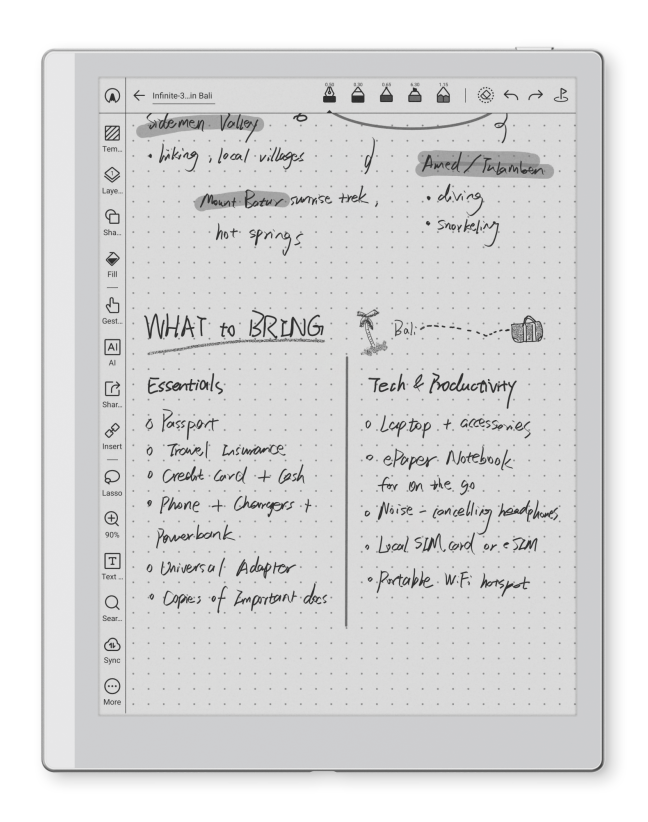 Infinite-3...in Bali
0.50 0.30 0.65 1.15
Tem...
Laye...
Sha...
Fill
Gest...
AI
AI
Shar...
Insert
Lasso
90%
Text ...
Sear...
Sync
More
Sidemen Valley
• hiking, local villages
Mount Batur sunrise trek,
hot springs
Amed / Tulamben
• diving
• snorkeling
WHAT to BRING
Bali
Essentials
Passport
Travel Insurance
Credit Card + Cash
Phone + Chargers +
Powerbank
Universal Adapter
Copies of Important docs
Tech & Productivity
Laptop + accessories
ePaper Notebook
for on the go
Noise-cancelling headphones
Local SIM card or eSIM
Portable WiFi hotspot